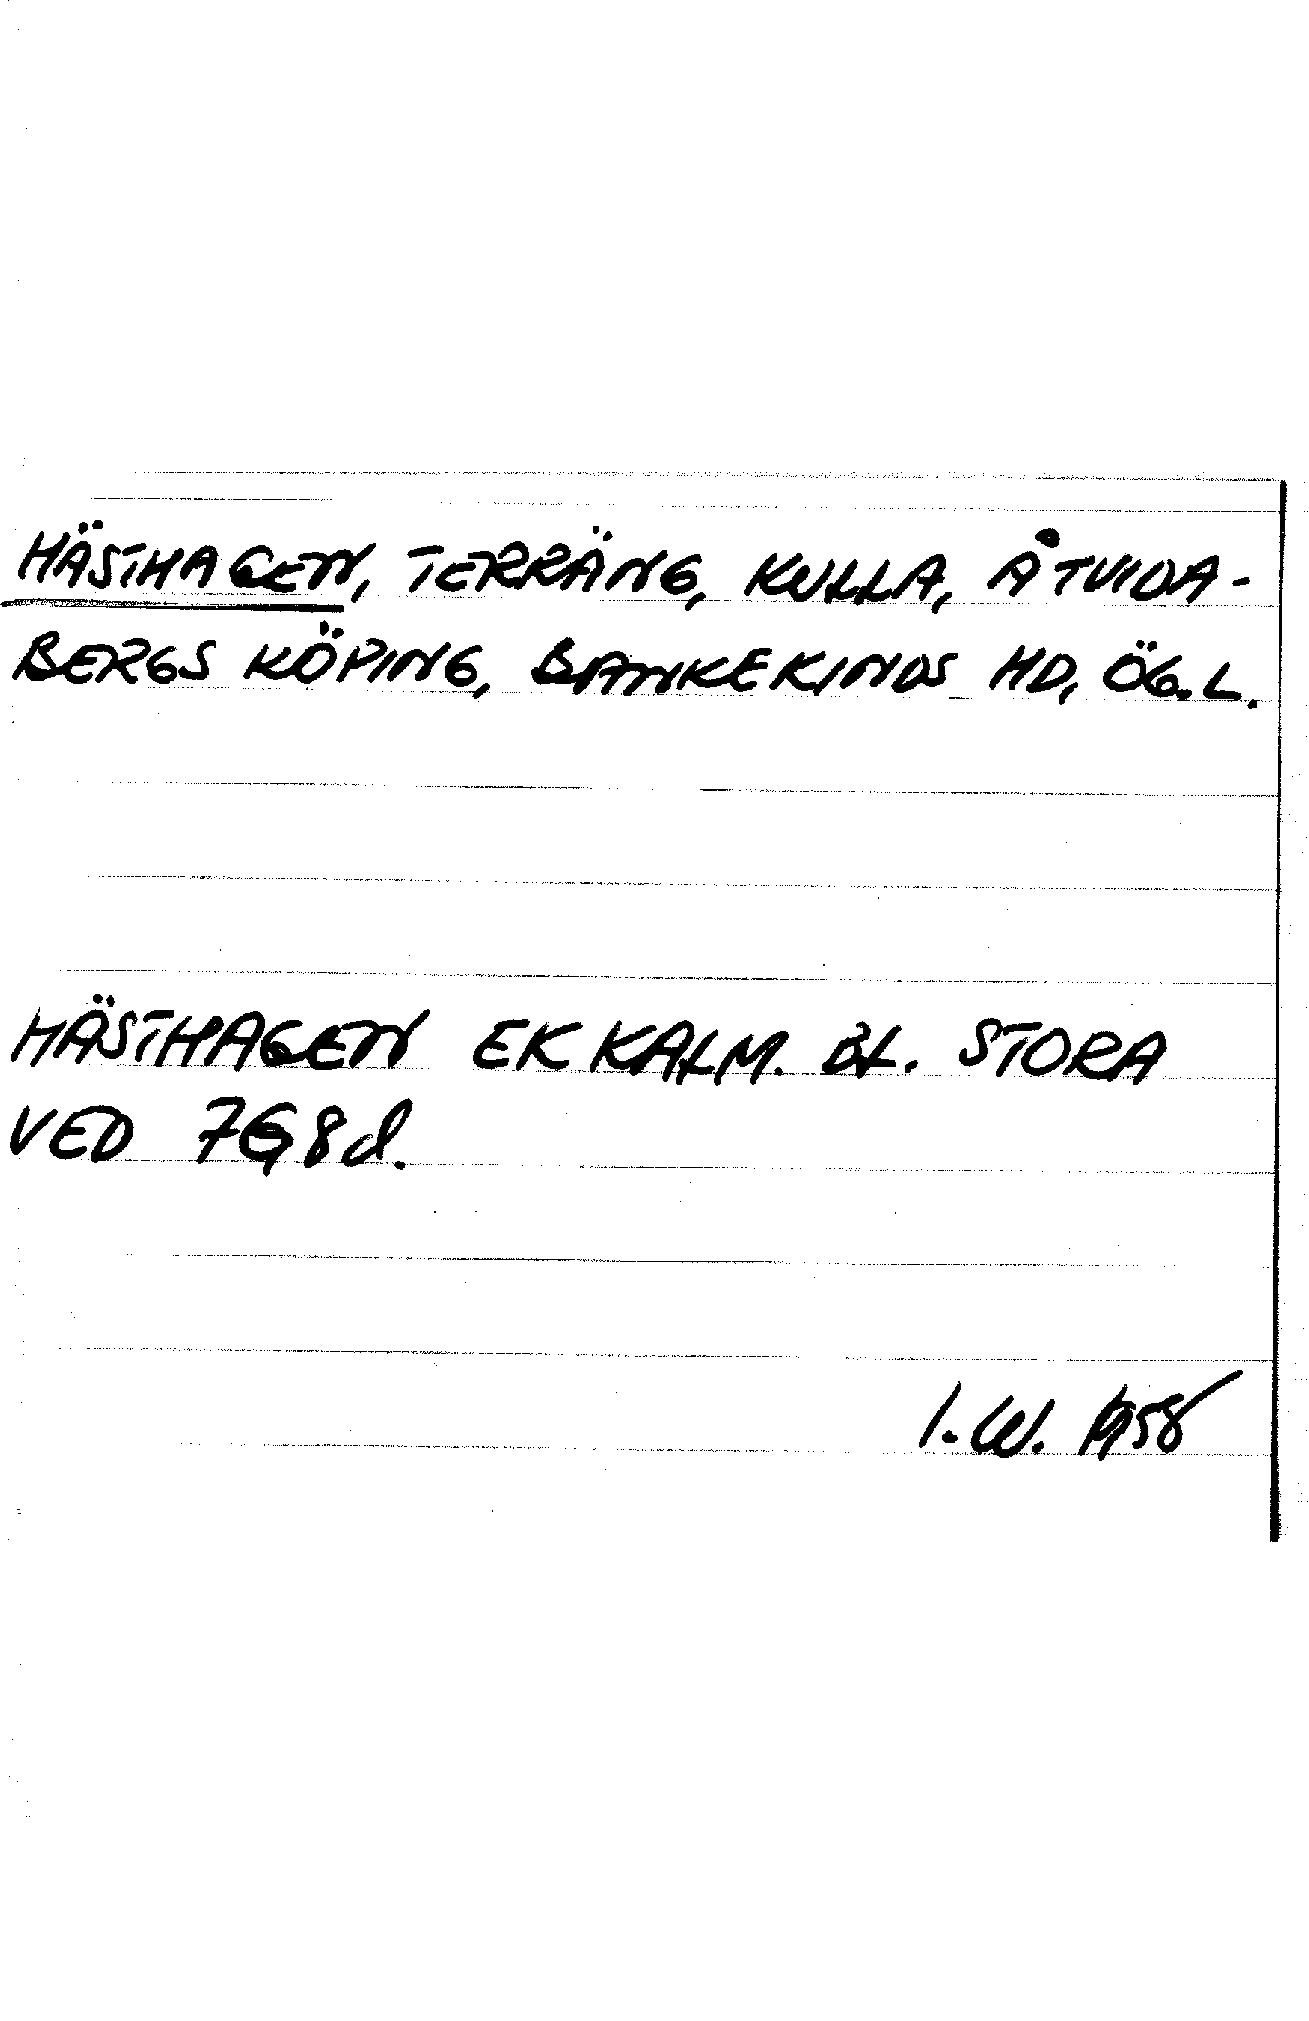 HÄSTHAGEN, TERRÄNG, KULLA, ÅTVIDA-
BERGS KÖPING, BANKEKINDS HD, ÖG.L.
HÄSTHAGEN EK KALM. BL. STORA
VED 7G8d.
I.W. 1958